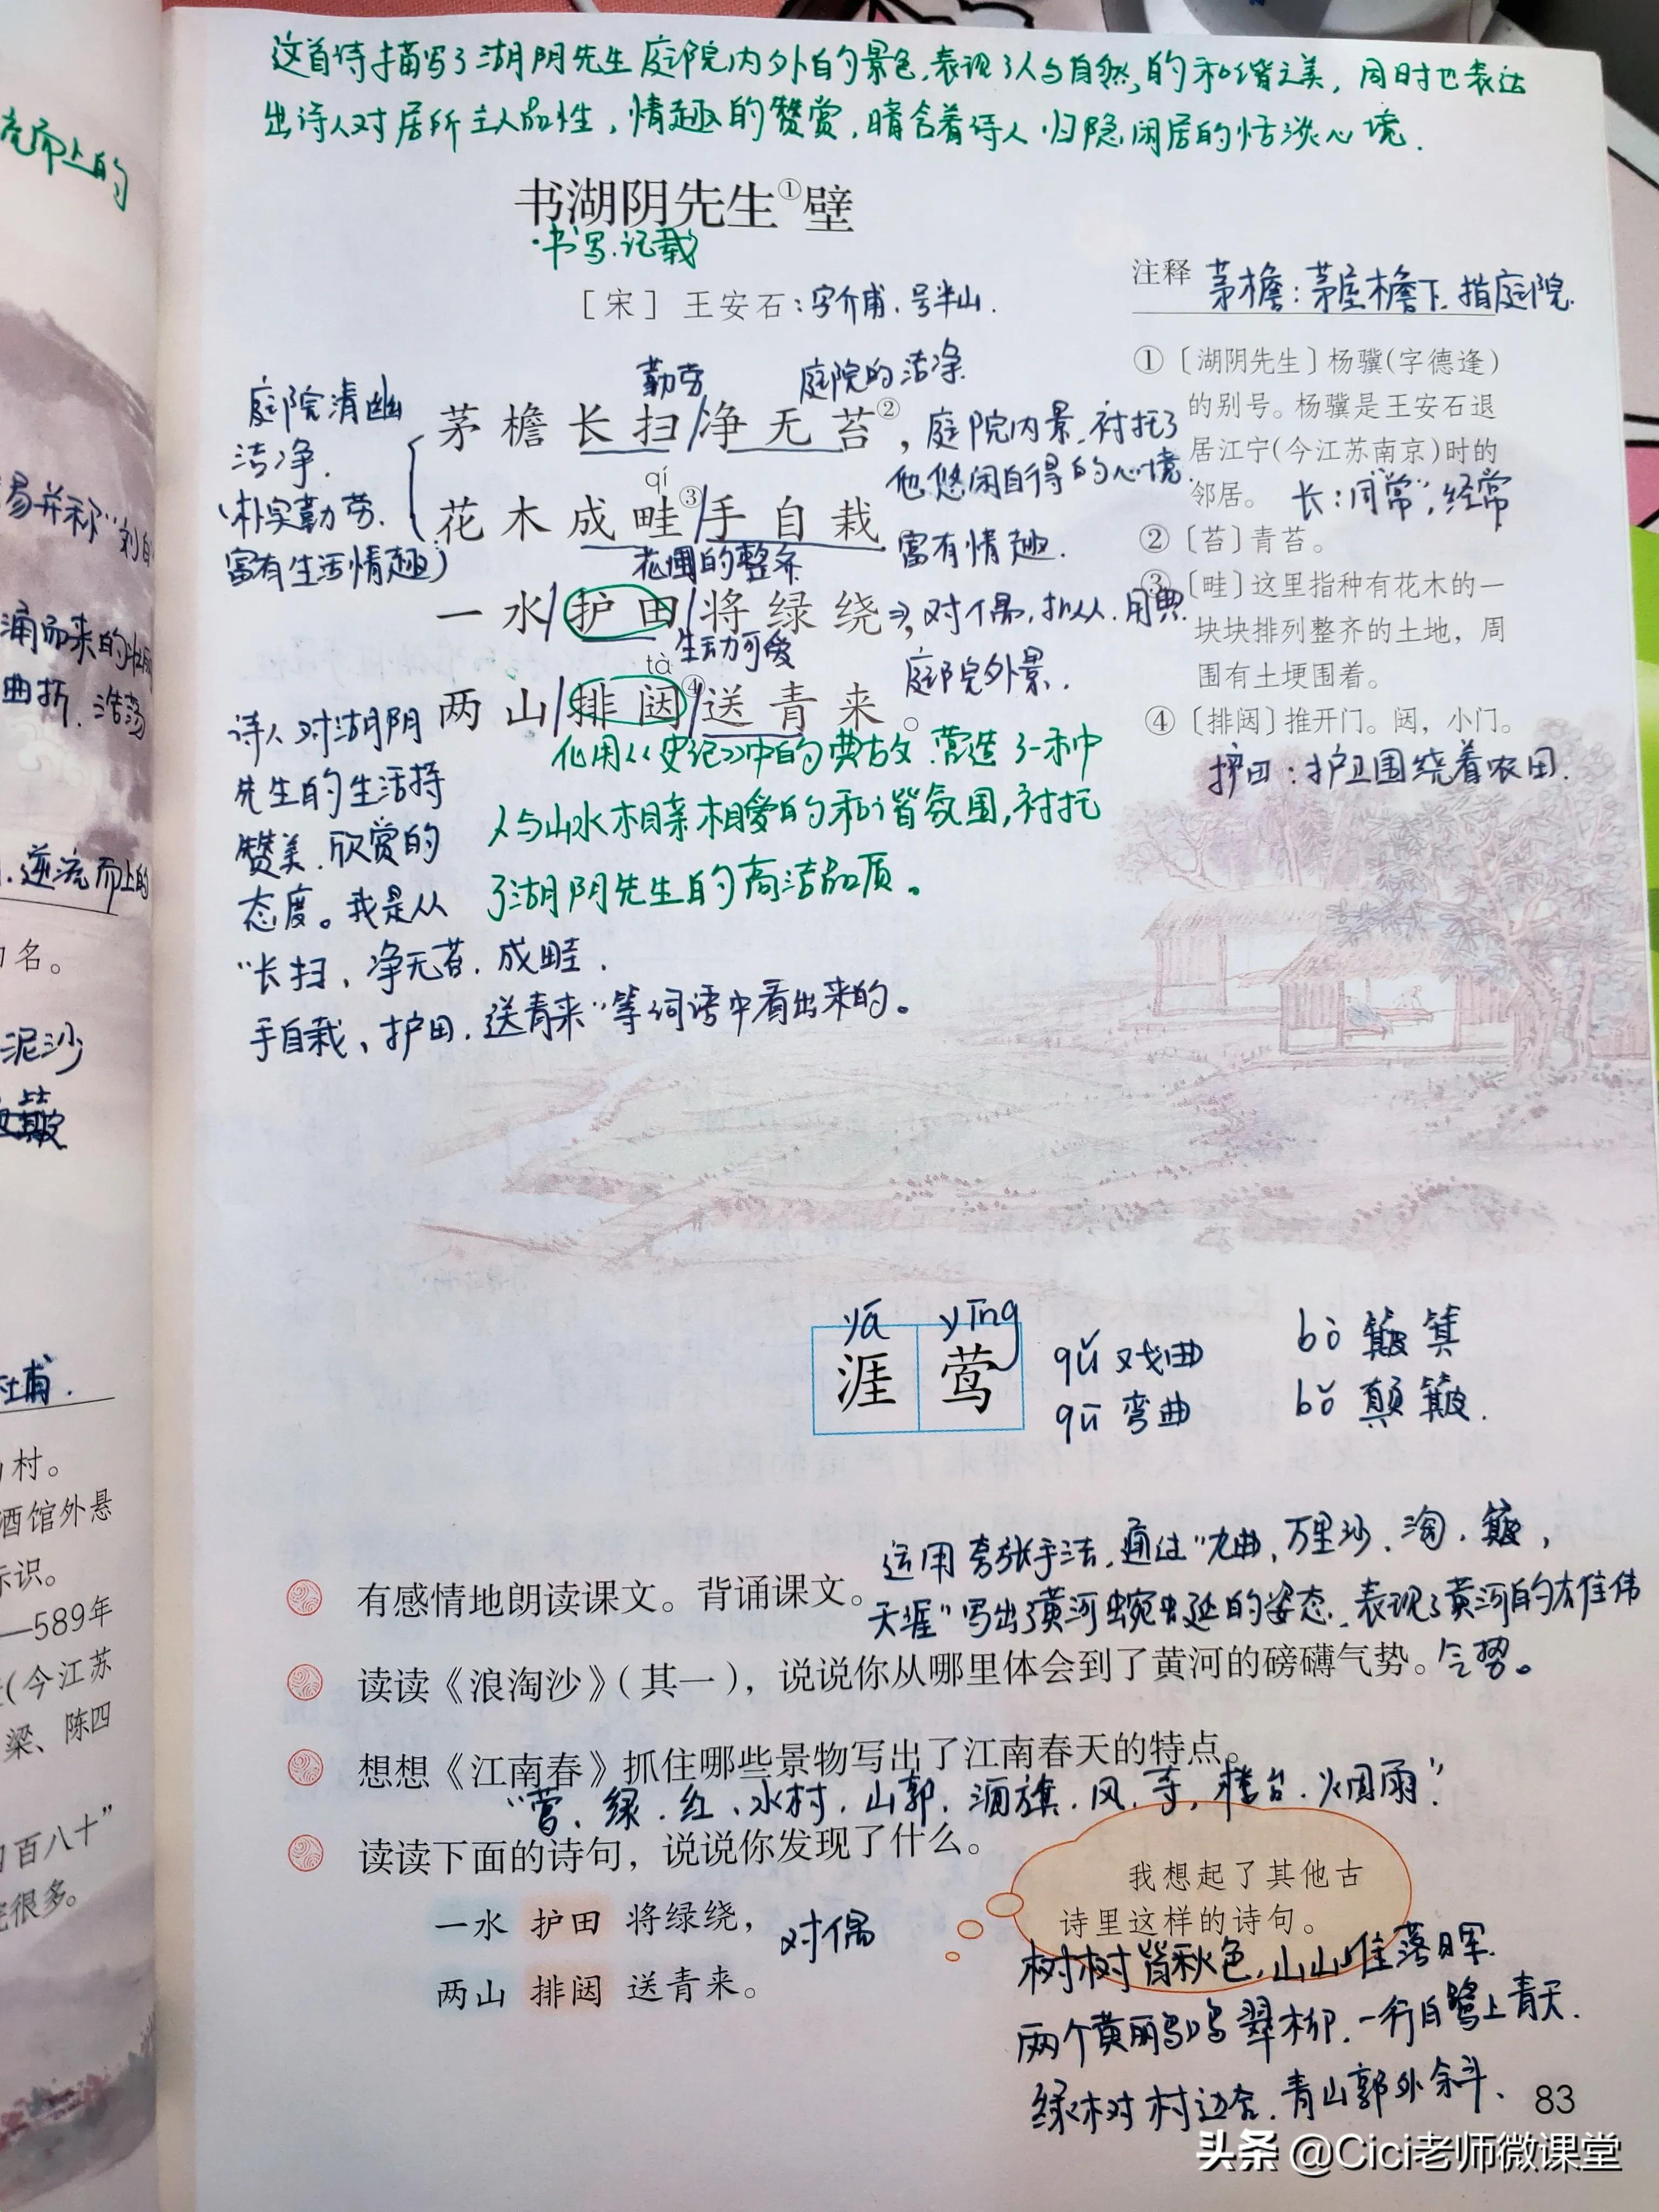 这首诗描写了湖阴先生庭院内外的景色,表现了人与自然的和谐之美,同时也表达
出诗人对居所主人品性,情趣的赞赏,暗含着诗人归隐闲居的恬淡心境.
书湖阴先生①壁
·书写.记载
[宋] 王安石:字介甫.号半山.
注释 茅檐:茅屋檐下.指庭院.
庭院清幽
洁净.
(朴实勤劳.
富有生活情趣)
勤劳 庭院的洁净.
茅檐长扫/净无苔②,
庭院内景.衬托了
他悠闲自得的心境.
qí
花木成畦③/手自栽
花圃的整齐
富有情趣.
一水/护田/将绿绕,
对偶,拟人.用典
生动可爱
庭院外景.
tà
两山/排闼④/送青来。
化用《史记》中的典故.营造了一种
人与山水相亲相爱的和谐氛围,衬托
了湖阴先生的高洁品质。
诗人对湖阴
先生的生活持
赞美.欣赏的
态度。我是从
"长扫、净无苔.成畦.
手自栽、护田.送青来"等词语中看出来的。
①〔湖阴先生〕杨骥(字德逢)
的别号。杨骥是王安石退
居江宁(今江苏南京)时的
邻居。
长:同"常",经常
②〔苔〕青苔。
③〔畦〕这里指种有花木的一
块块排列整齐的土地,周
围有土埂围着。
④〔排闼〕推开门。闼,小门。
护田:护卫围绕着农田.
yá yīng
涯 莺
qǔ 戏曲
qū 弯曲
bò 簸箕
bǒ 颠簸.
有感情地朗读课文。背诵课文。
运用夸张手法.通过"九曲、万里沙、淘.簸,
天涯"写出了黄河蜿蜒的姿态.表现了黄河的雄伟
气势。
读读《浪淘沙》(其一),说说你从哪里体会到了黄河的磅礴气势。
想想《江南春》抓住哪些景物写出了江南春天的特点。
"莺、绿.红、水村.山郭.酒旗.风.寺.楼台.烟雨".
读读下面的诗句,说说你发现了什么。
一水 护田 将绿绕,
两山 排闼 送青来。
对偶
我想起了其他古
诗里这样的诗句。
树树皆秋色,山山唯落晖.
两个黄鹂鸣翠柳.一行白鹭上青天.
绿树村边合.青山郭外斜、
83
头条 @Cici老师微课堂
而上的
逆流而上的
名。
泥沙
村。
酒馆外悬
标识。
—589年
(今江苏
梁、陈四
百八十"
很多。